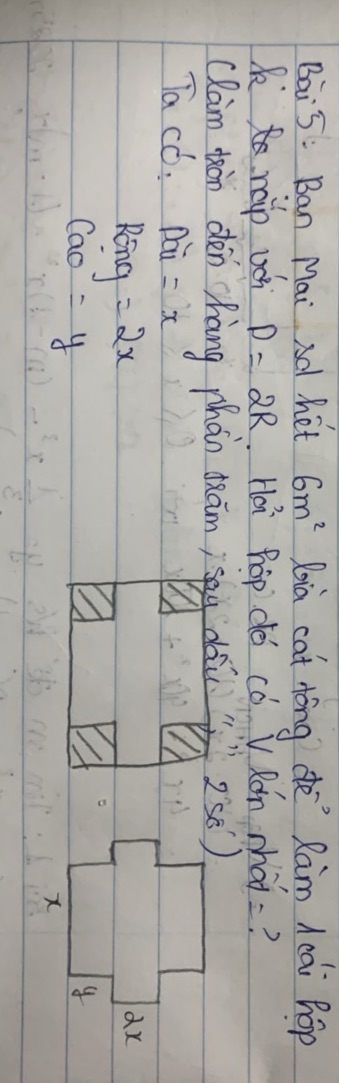 Bài 5: Bạn Mai sd hết 6m² bìa cát tông để làm 1 cái hộp
k ta nắp với D = 2R. Hỏi hộp đó có V lớn nhất = ?
(làm tròn đến hàng phần trăm, sau dấu "," 2 số)
Ta có: Dài = x
Rộng = 2x
Cao = y
2x
y
x